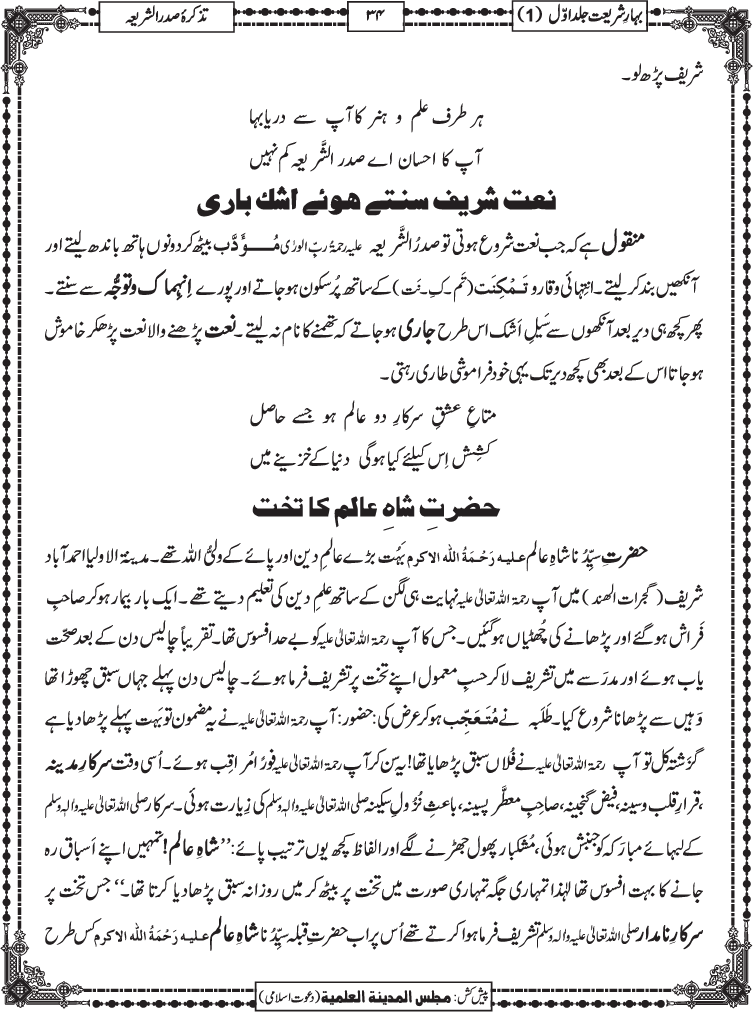 بہارِ شریعت جلد اوّل (1)
۳۴
تذکرۂ صدر الشریعہ
شریف پڑھ لو۔
ہر طرف علم و ہنر کا آپ سے دریا بہا
آپ کا احسان اے صدر الشَّریعہ کم نہیں
نعت شریف سنتے ہوئے اشک باری
منقول ہے کہ جب نعت شروع ہوتی تو صدرُ الشَّریعہ علیہ رحمۃُ ربِّ الورٰی مُؤَدَّب بیٹھ کر دونوں ہاتھ باندھ لیتے اور
آنکھیں بند کرلیتے۔ انتِہائی وقار و تَمْکِنَت (تَم۔کِ۔نَت) کے ساتھ پُرسکون ہوجاتے اور پورے اِنہِماک و توجُّہ سے سنتے۔
پھر کچھ ہی دیر بعد آنکھوں سے سَیلِ اَشک اس طرح جاری ہوجاتے کہ تھمنے کا نام نہ لیتے۔ نعت پڑھنے والا نعت پڑھ کر خاموش
ہوجاتا اس کے بعد بھی کچھ دیر تک یہی خود فراموشی طاری رہتی۔
متاعِ عشقِ سرکارِ دو عالم ہو جسے حاصل
کشِش اِس کیلئے کیا ہوگی دنیا کے خزینے میں
حضرتِ شاہِ عالم کا تخت
حضرتِ سیِّدُنا شاہِ عالم علیہ رَحْمَۃُ اللہ الاکرم بَہُت بڑے عالمِ دین اور پائے کے ولیُّ اللہ تھے۔ مدینۃ الاولیا احمدآباد
شریف (گجرات الھند) میں آپ رحمۃ اللہ تعالیٰ علیہ نہایت ہی لگن کے ساتھ علمِ دین کی تعلیم دیتے تھے۔ ایک بار بیمار ہوکر صاحبِ
فَراش ہوگئے اور پڑھانے کی چُھٹیاں ہوگئیں۔ جس کا آپ رحمۃ اللہ تعالیٰ علیہ کو بے حد افسوس تھا۔ تقریباً چالیس دن کے بعد صحّت
یاب ہوئے اور مدرَسے میں تشریف لاکر حسبِ معمول اپنے تخت پر تشریف فرما ہوئے۔ چالیس دن پہلے جہاں سبق چھوڑا تھا
وَہیں سے پڑھانا شروع کیا۔ طَلَبہ نے مُتَعَجِّب ہوکر عرض کی: حضور: آپ رحمۃ اللہ تعالیٰ علیہ نے یہ مضمون تو بَہُت پہلے پڑھادیا ہے
گزَشتہ کل تو آپ رحمۃ اللہ تعالیٰ علیہ نے فُلاں سبق پڑھایا تھا! یہ سن کر آپ رحمۃ اللہ تعالیٰ علیہ فورًا مُراقِب ہوئے۔ اُسی وقت سرکارِ مدینہ
، قرارِ قلب و سینہ، فیض گنجینہ، صاحِبِ معطَّر پسینہ، باعثِ نُزُولِ سکینہ صلی اللہ تعالیٰ علیہ والہٖ وسلم کی زِیارت ہوئی۔ سرکار صلی اللہ تعالیٰ علیہ والہٖ وسلم
کے لبہائے مبارَکہ کو جنبش ہوئی، مُشکبار پھول جھڑنے لگے اور الفاظ کچھ یوں ترتیب پائے: ’’شاہِ عالم! تمہیں اپنے اَسباق رہ
جانے کا بہت افسوس تھا لہٰذا تمہاری جگہ تمہاری صورت میں تخت پر بیٹھ کر میں روزانہ سبق پڑھا دیا کرتا تھا۔‘‘ جس تخت پر
سرکارِ نامدار صلی اللہ تعالیٰ علیہ والہٖ وسلم تشریف فرما ہوا کرتے تھے اُس پر اب حضرتِ قبلہ سیِّدُنا شاہِ عالم علیہ رَحْمَۃُ اللہ الاکرم کس طرح
پیش کش: مجلس المدینۃ العلمیۃ (دعوتِ اسلامی)